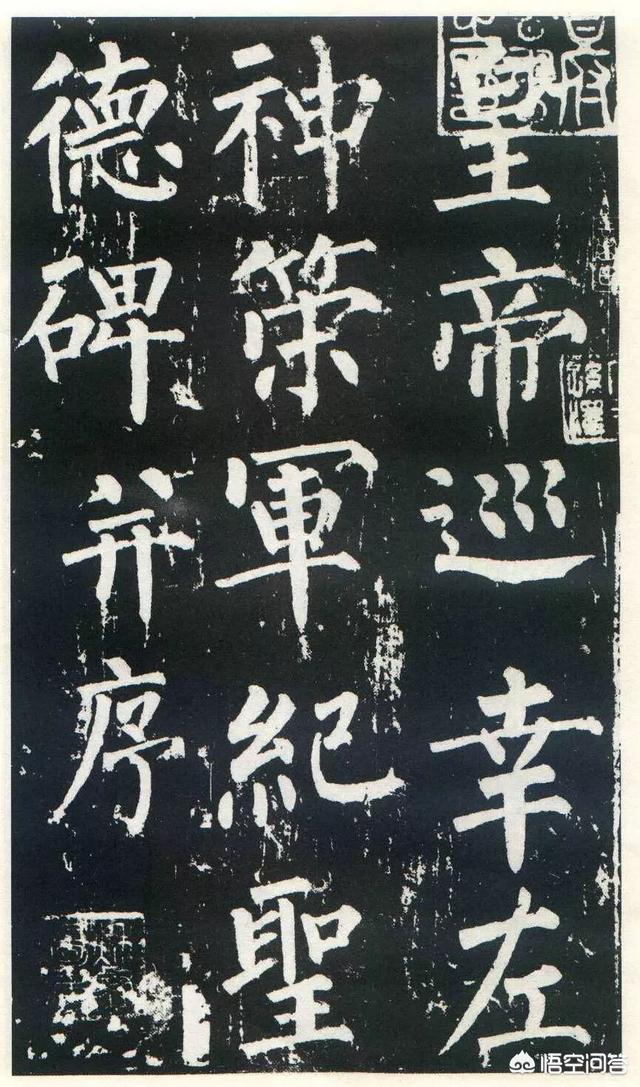 皇帝巡幸左
神策軍紀聖
德碑并序
悟空问答